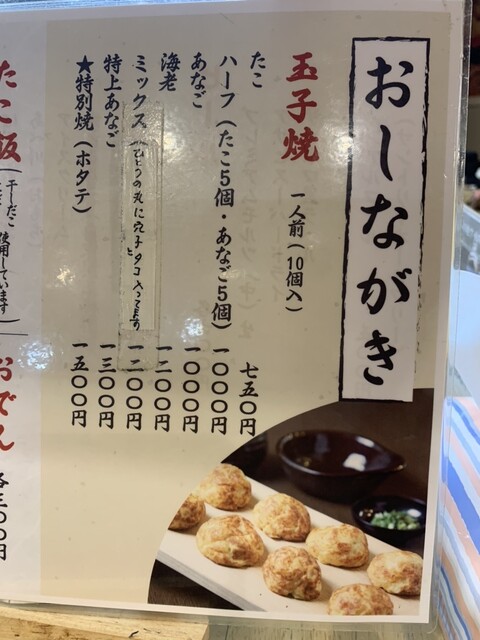 おしながき
玉子焼 一人前(10個入)
たこ 七五〇円
ハーフ(たこ5個・あなご5個) 一〇〇〇円
あなご 一〇〇〇円
海老 一二〇〇円
ミックス(ひとつの丸に穴子とタコ入ってます 一二〇〇円
特上あなご 一三〇〇円
★特別焼(ホタテ) 一五〇〇円
たこ飯
(干しだこ
使用しています)
おでん 各三〇〇円